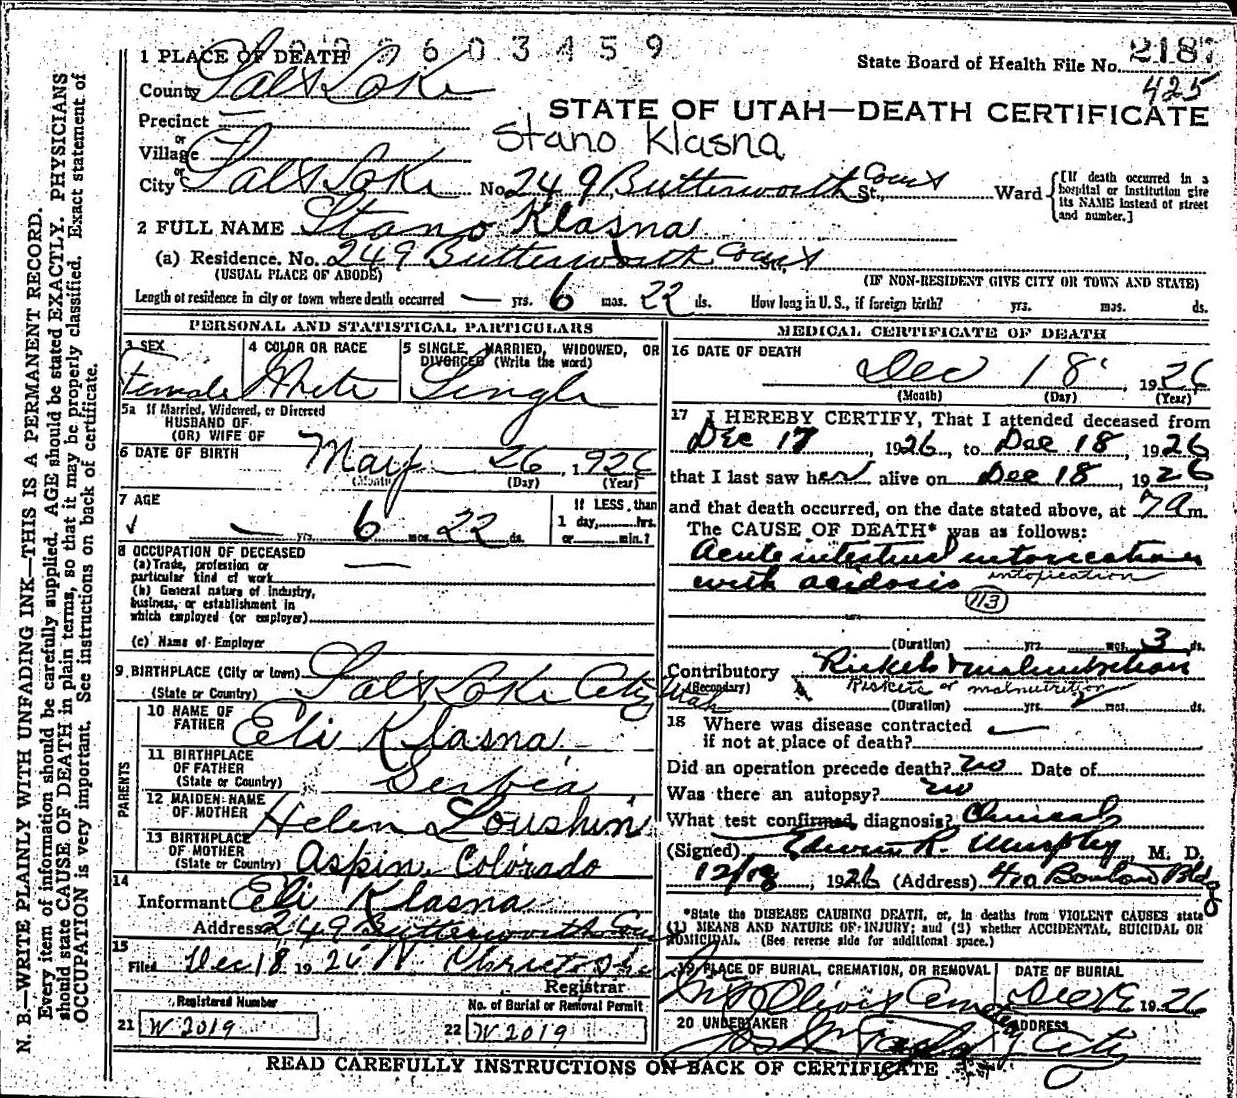 603459
1 PLACE OF DEATH
State Board of Health File No. 2187
425
County Salt Lake
STATE OF UTAH—DEATH CERTIFICATE
Precinct —
Stano Klasna
or
Village
or
City Salt Lake No. 249 Butterworth Court St., Ward
[If death occurred in a hospital or institution give its NAME instead of street and number.]
2 FULL NAME Stano Klasna
(a) Residence. No. 249 Butterworth Court St.,
(USUAL PLACE OF ABODE) (IF NON-RESIDENT GIVE CITY OR TOWN AND STATE)
Length of residence in city or town where death occurred — yrs. 6 mos. 22 ds. How long in U. S., if foreign birth? yrs. mos. ds.
PERSONAL AND STATISTICAL PARTICULARS
3 SEX Female
4 COLOR OR RACE White
5 SINGLE, MARRIED, WIDOWED, OR DIVORCED (Write the word)
Single
5a If Married, Widowed, or Divorced
HUSBAND OF
(OR) WIFE OF
6 DATE OF BIRTH May 26, 1926
(Month) (Day) (Year)
7 AGE
— yrs. 6 mos. 22 ds.
If LESS than
1 day, hrs.
or min.?
8 OCCUPATION OF DECEASED
(a) Trade, profession or
particular kind of work —
(b) General nature of industry,
business, or establishment in
which employed (or employer)
(c) Name of Employer
9 BIRTHPLACE (City or town) Salt Lake City
(State or Country) Utah
PARENTS
10 NAME OF
FATHER Eli Klasna
11 BIRTHPLACE
OF FATHER
(State or Country) Serbia
12 MAIDEN NAME
OF MOTHER Helen Loushin
13 BIRTHPLACE
OF MOTHER
(State or Country) Aspin, Colorado
14
Informant Eli Klasna
Address 249 Butterworth Court
15
Filed Dec 18 1926
Registrar
Registered Number
21 W 2019
No. of Burial or Removal Permit
22 W 2019
MEDICAL CERTIFICATE OF DEATH
16 DATE OF DEATH
Dec 18, 1926
(Month) (Day) (Year)
17 I HEREBY CERTIFY, That I attended deceased from
Dec 17, 1926, to Dec 18, 1926
that I last saw her alive on Dec 18, 1926
and that death occurred, on the date stated above, at 7 a m.
The CAUSE OF DEATH* was as follows:
Acute intestinal intoxication
with acidosis intoxication
113
(Duration) yrs. mos. 3 ds.
Contributory Rickets & malnutrition
(Secondary) Rickets or malnutrition
(Duration) yrs. mos. ds.
18 Where was disease contracted
if not at place of death?
Did an operation precede death? no Date of
Was there an autopsy? no
What test confirmed diagnosis? Clinical
(Signed) Edwin R. Murphy, M. D.
12/18, 1926 (Address) 410 Boston Bldg
*State the DISEASE CAUSING DEATH, or, in deaths from VIOLENT CAUSES state
(1) MEANS AND NATURE OF INJURY; and (2) whether ACCIDENTAL, SUICIDAL OR
HOMICIDAL. (See reverse side for additional space.)
19 PLACE OF BURIAL, CREMATION, OR REMOVAL
Mt Olivet Cemetery
DATE OF BURIAL
Dec 19 1926
20 UNDERTAKER
Taylor
ADDRESS
City
READ CAREFULLY INSTRUCTIONS ON BACK OF CERTIFICATE
N. B.—WRITE PLAINLY WITH UNFADING INK—THIS IS A PERMANENT RECORD.
Every item of information should be carefully supplied. AGE should be stated EXACTLY. PHYSICIANS
should state CAUSE OF DEATH in plain terms, so that it may be properly classified. Exact statement of
OCCUPATION is very important. See instructions on back of certificate.